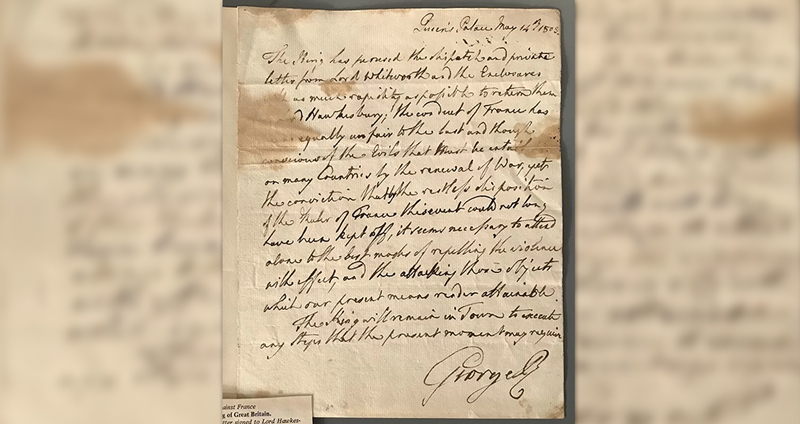 Queen's Palace May 14th 1803.
The King has perused the dispatch and private
letter from Lord Whitworth and the Enclosures
as much rapidity as possible to return them
Hawkesbury; the conduct of France has
equally unfair to the last and though
conscious of the Evils that must be entail
on many Countries by the renewal of War, yet
the conviction that the restless disposition
of the Ruler of France this event could not long
have been kept off, it seems necessary to attend
alone to the best modes of repelling the violence
with effect, and the attacking those objects
which our present means render attainable.
The King will remain in Town to execute
any steps that the present moment may require
George R
ainst France
g of Great Britain.
tter signed to Lord Hawkes-